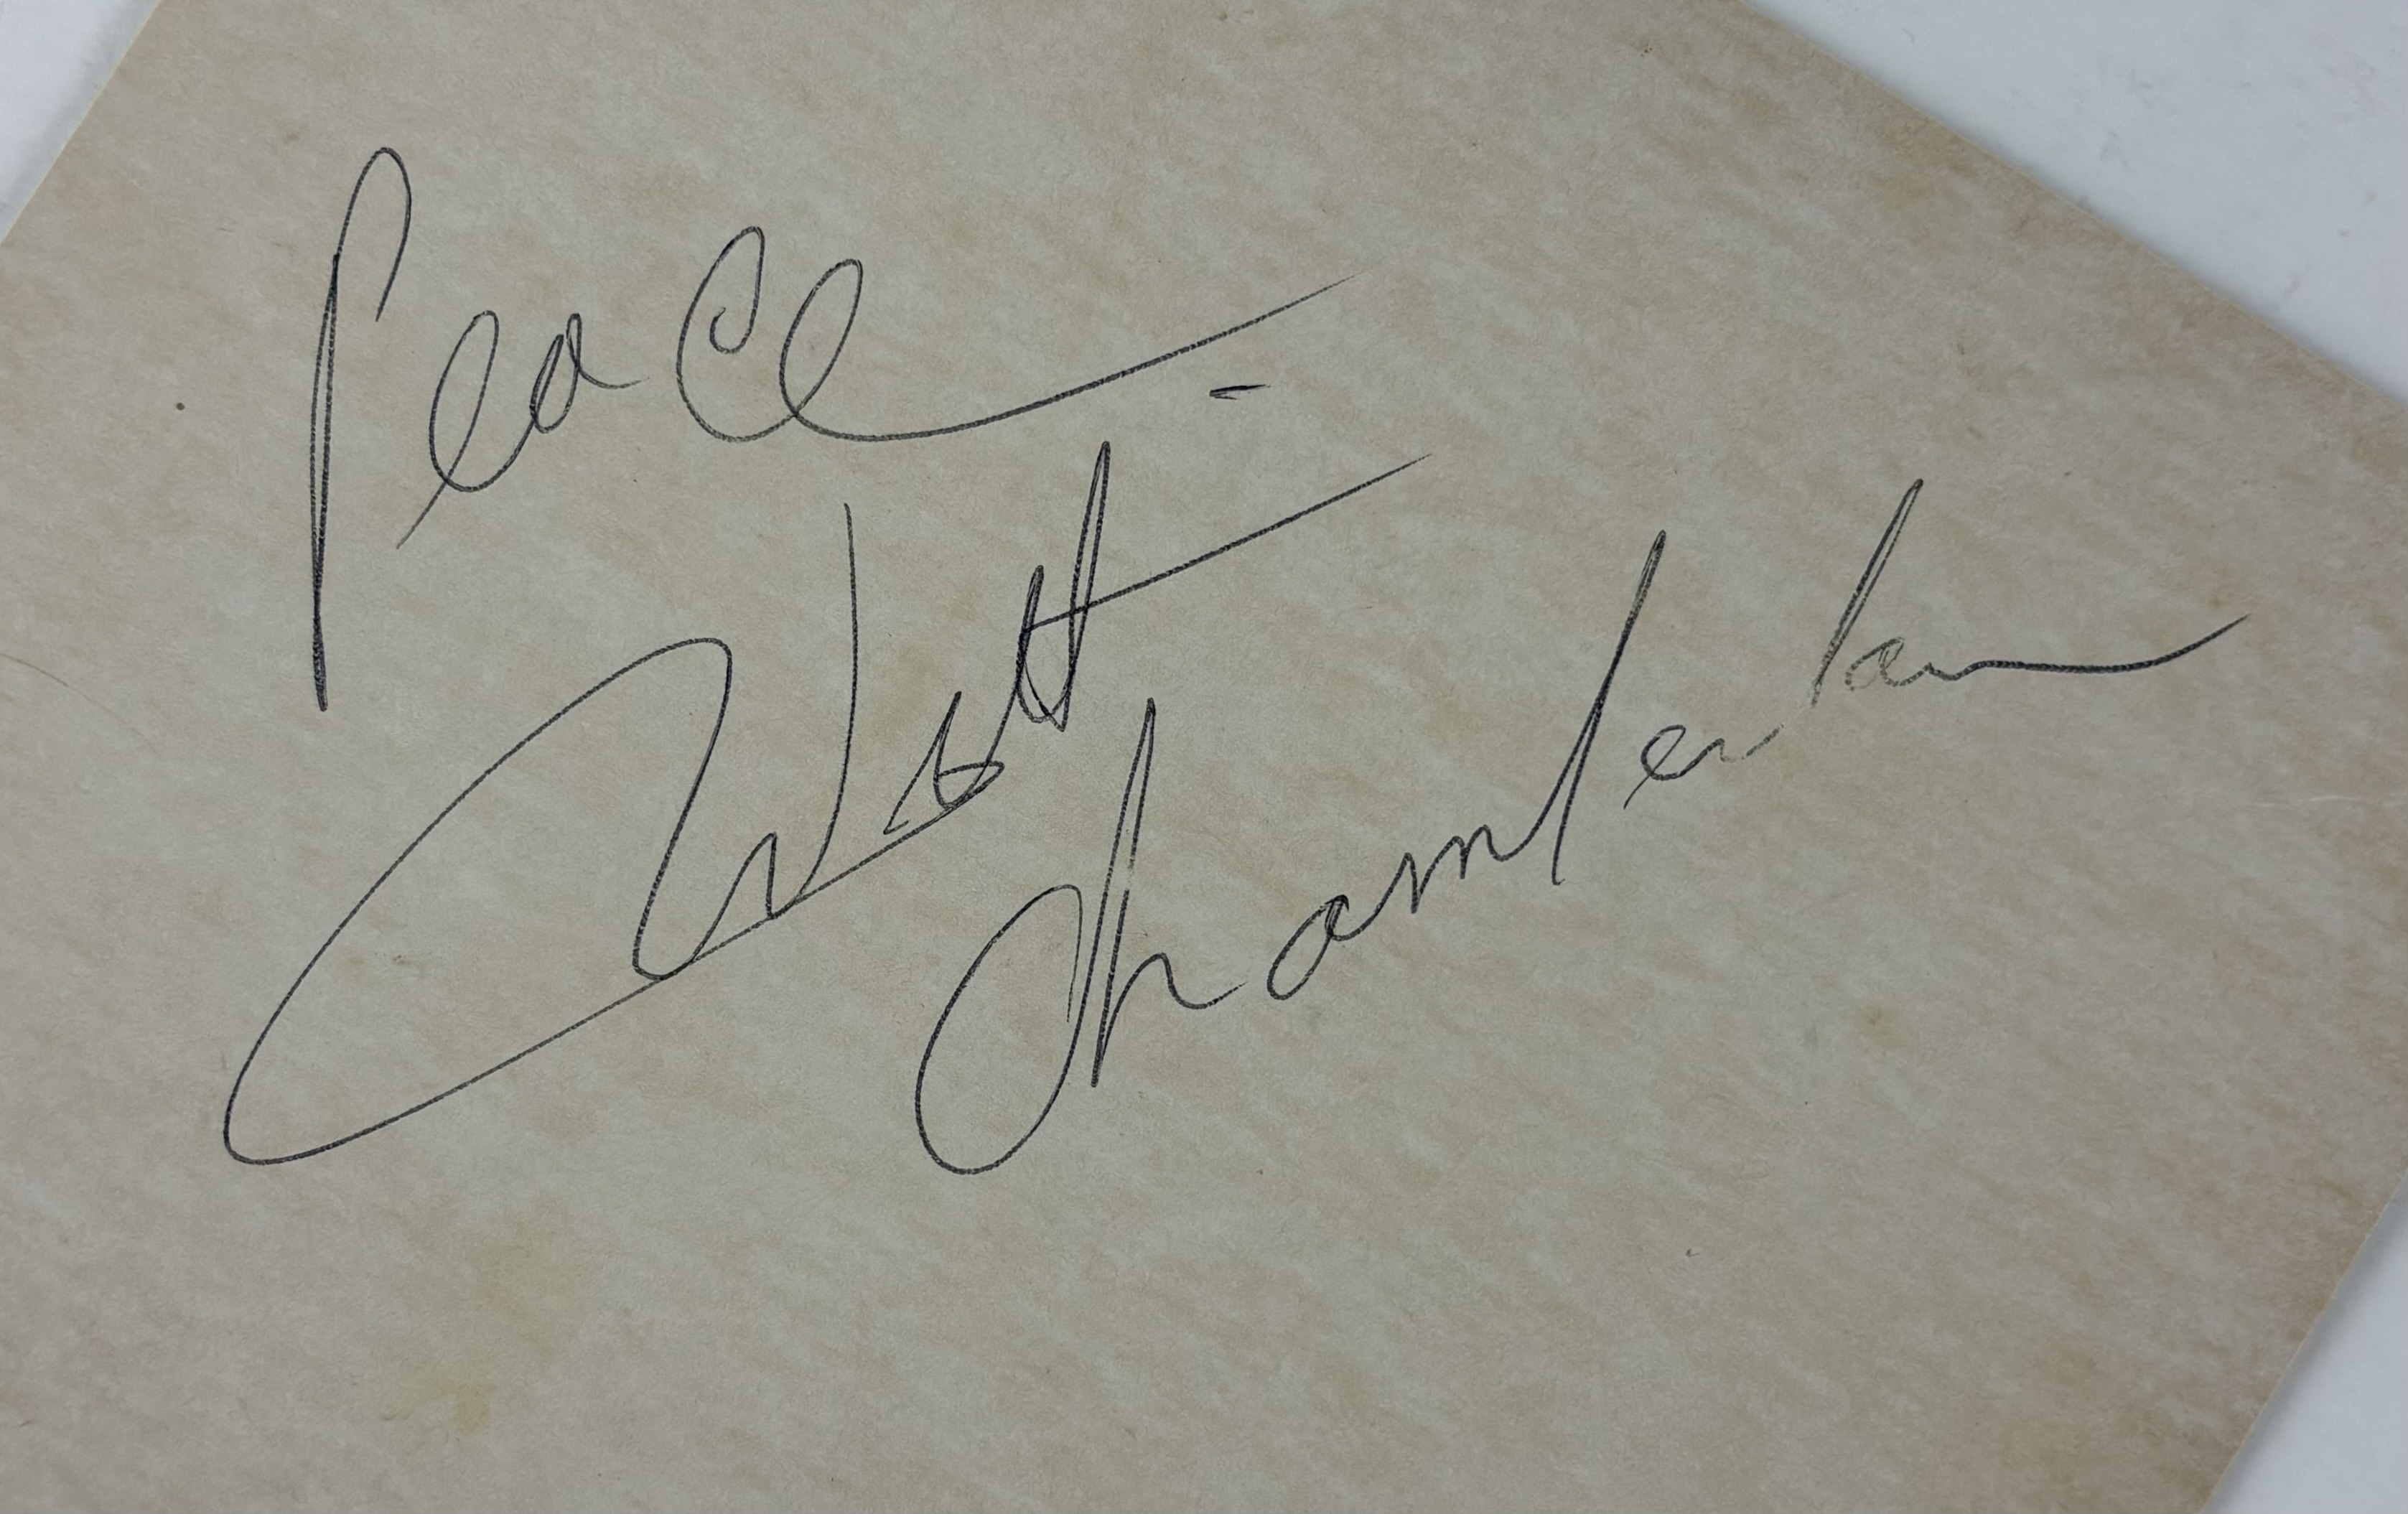 Peace -
Wilt
Chamberlain